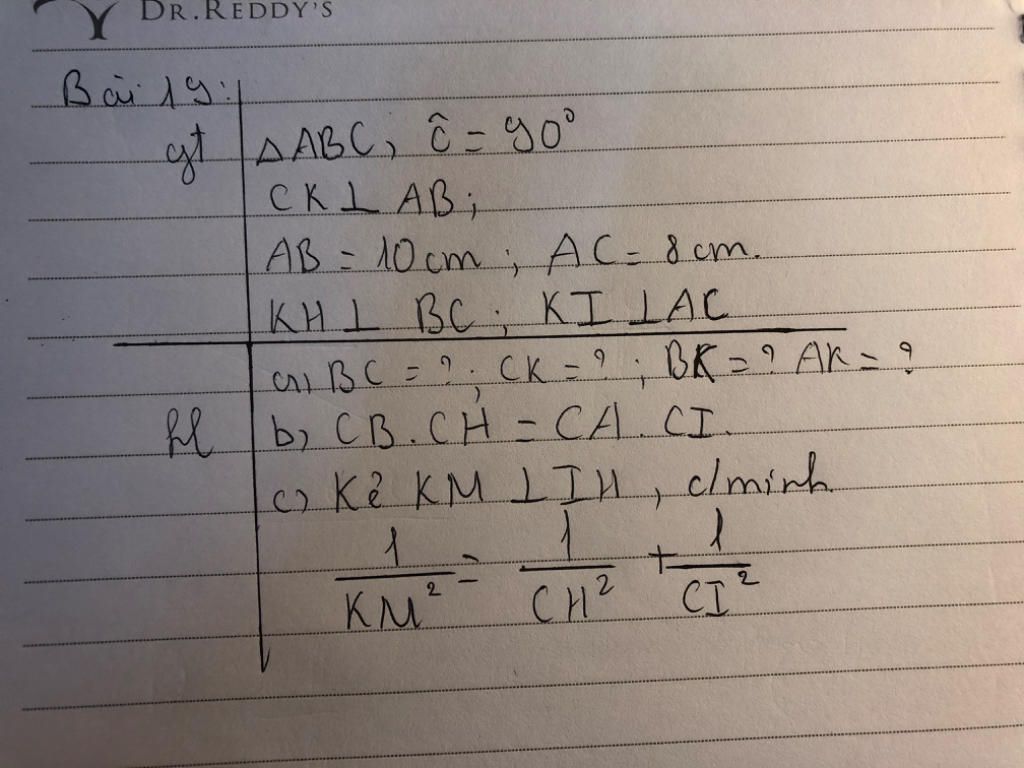 DR.REDDY'S
Bài 19:
gt ΔABC, ĉ = 90°
CK ⊥ AB;
AB = 10cm; AC = 8cm.
KH ⊥ BC; KI ⊥ AC
a, BC = ?; CK = ?; BK = ? AK = ?
kl b, CB.CH = CA.CI.
c, Kẻ KM ⊥ IH, c/minh
1/KM² = 1/CH² + 1/CI²